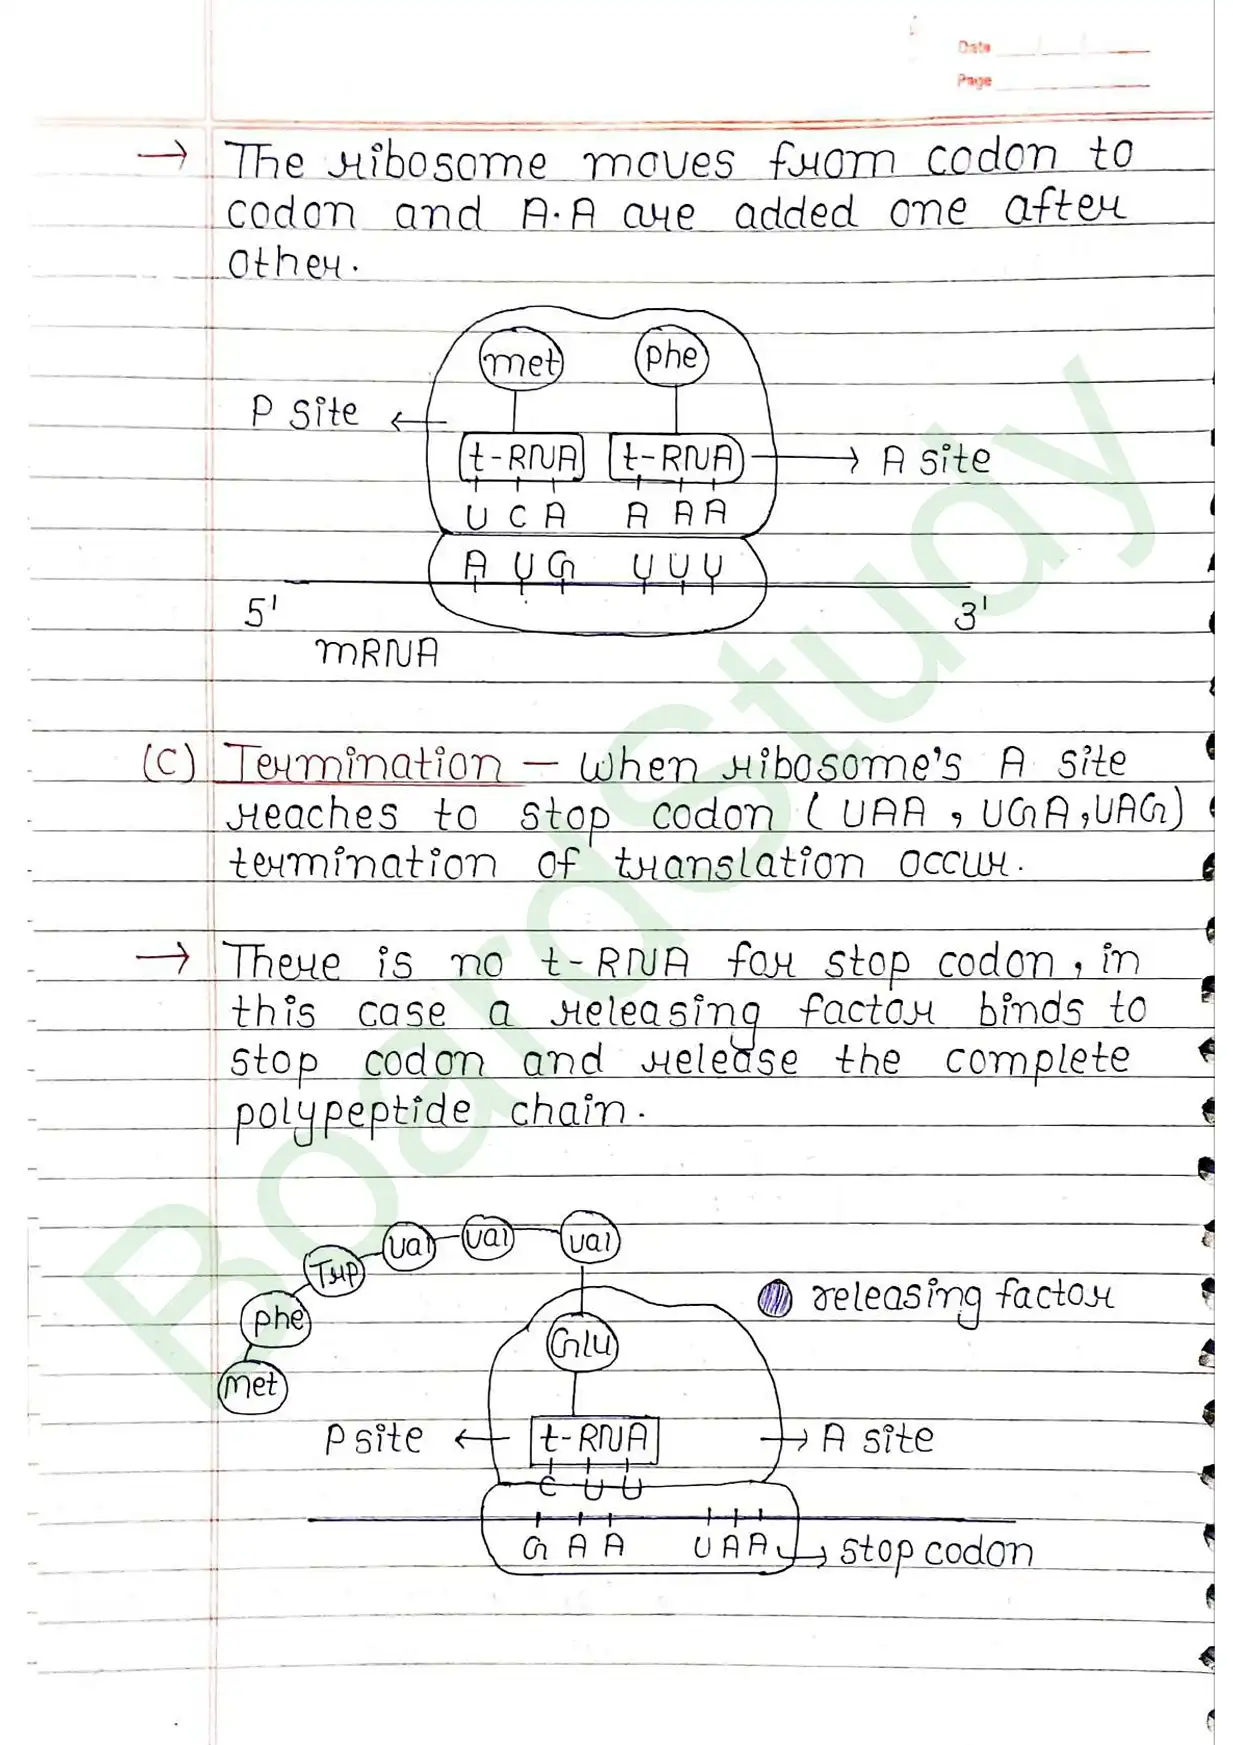 Date
Page
→ The ribosome moves from codon to
codon and A.A are added one after
other.
met phe
P site ←
t-RNA t-RNA → A site
U C A A A A
A U G U U U
5' 3'
mRNA
(C) Termination – When ribosome's A site
reaches to stop codon (UAA, UGA, UAG)
termination of translation occur.
→ There is no t-RNA for stop codon, in
this case a releasing factor binds to
stop codon and release the complete
polypeptide chain.
met phe Trp val val val
releasing factor
Glu
P site ← t-RNA → A site
C U U
G A A U A A → stop codon
BoardStudy